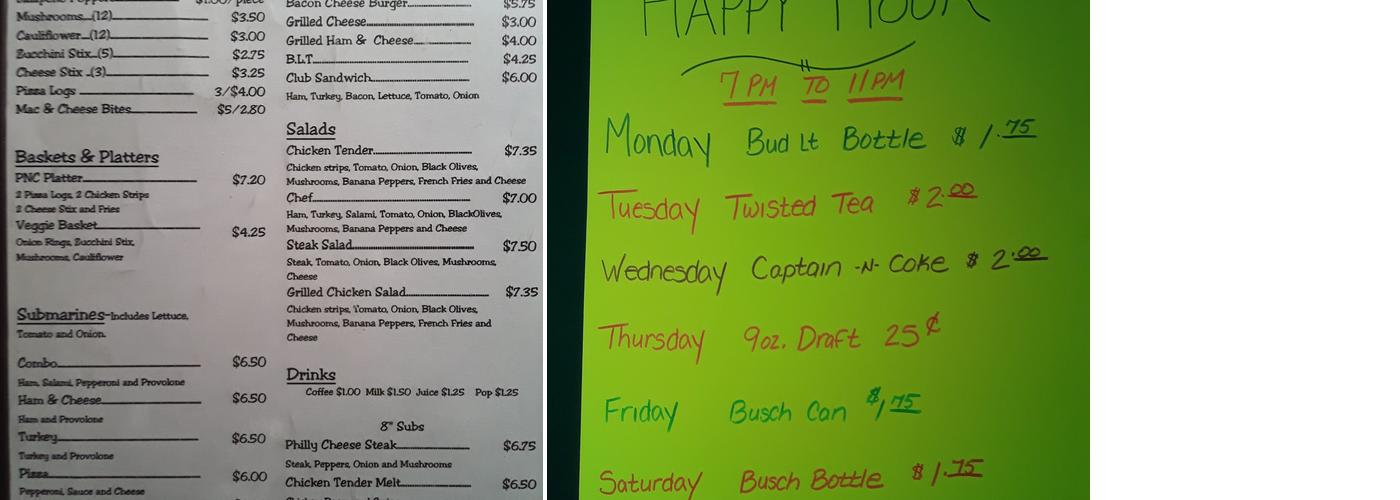 $1.00/ piece
Mushrooms...(12) $3.50
Cauliflower...(12) $3.00
Zucchini Stix...(5) $2.75
Cheese Stix ..(3) $3.25
Pizza Logs 3/$4.00
Mac & Cheese Bites $5/2.80
Baskets & Platters
PNC Platter $7.20
2 Pizza Logs, 2 Chicken Strips
2 Cheese Stix and Fries
Veggie Basket $4.25
Onion Rings, Zucchini Stix,
Mushrooms, Cauliflower
Submarines-Includes Lettuce,
Tomato and Onion.
Combo $6.50
Ham, Salami, Pepperoni and Provolone
Ham & Cheese $6.50
Ham and Provolone
Turkey $6.50
Turkey and Provolone
Pizza $6.00
Pepperoni, Sauce and Cheese
Bacon Cheese Burger $5.75
Grilled Cheese $3.00
Grilled Ham & Cheese $4.00
B.L.T. $4.25
Club Sandwich $6.00
Ham, Turkey, Bacon, Lettuce, Tomato, Onion
Salads
Chicken Tender $7.35
Chicken strips, Tomato, Onion, Black Olives,
Mushrooms, Banana Peppers, French Fries and Cheese
Chef $7.00
Ham, Turkey, Salami, Tomato, Onion, BlackOlives,
Mushrooms, Banana Peppers and Cheese
Steak Salad $7.50
Steak, Tomato, Onion, Black Olives, Mushrooms,
Cheese
Grilled Chicken Salad $7.35
Chicken strips, Tomato, Onion, Black Olives,
Mushrooms, Banana Peppers, French Fries and
Cheese
Drinks
Coffee $1.00 Milk $1.50 Juice $1.25 Pop $1.25
8" Subs
Philly Cheese Steak $6.75
Steak, Peppers, Onion and Mushrooms
Chicken Tender Melt $6.50
HAPPY HOUR
7 PM TO 11 PM
Monday Bud Lt Bottle $1.75
Tuesday Twisted Tea $2.00
Wednesday Captain -N- Coke $2.00
Thursday 9oz. Draft 25¢
Friday Busch Can $1.75
Saturday Busch Bottle $1.75